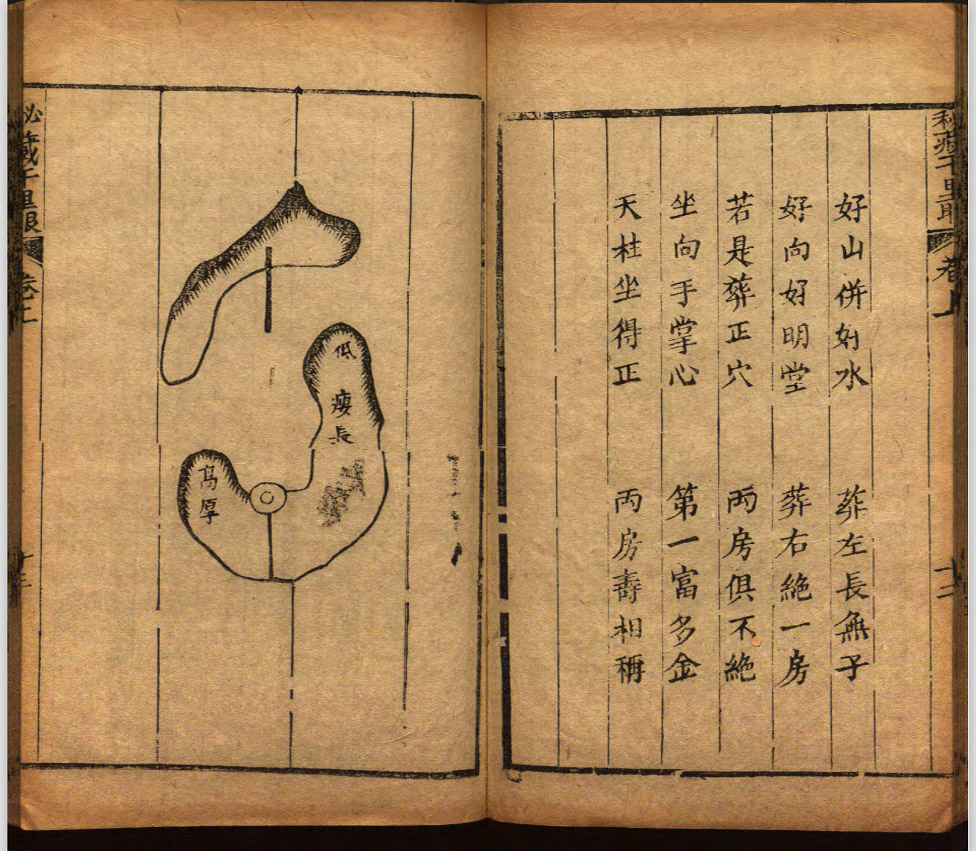 秘藏千里眼 卷上 十二
好山併好水 葬左長無子
好向好明堂 葬右絶一房
若是葬正穴 兩房俱不絶
坐向手掌心 第一富多金
天柱坐得正 丙房壽相稱
低瘦長
高厚
秘藏千里眼 卷上